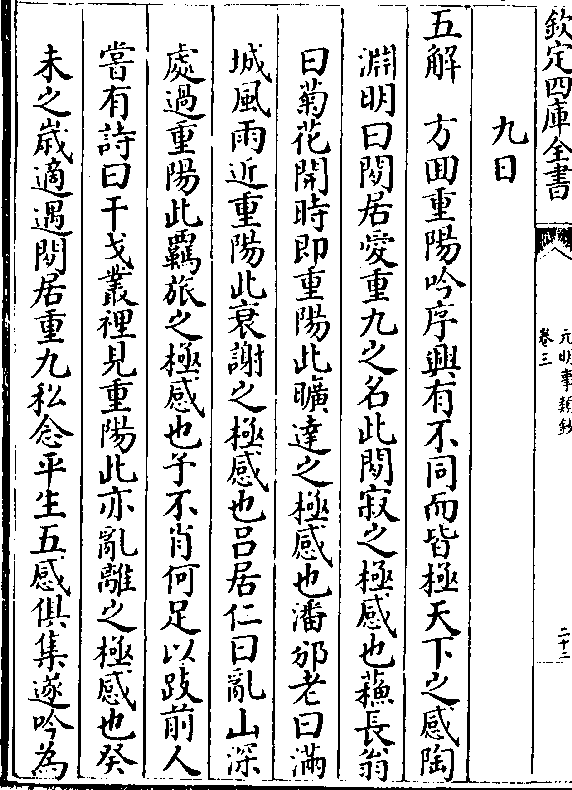 欽定四庫全書
元明事類鈔
卷三
二十二
九日
五解　方回重陽吟序興有不同而皆極天下之感陶
淵明曰閒居愛重九之名此閒寂之極感也蘓長翁
曰菊花開時即重陽此曠達之極感也潘邠老曰滿
城風雨近重陽此衰謝之極感也吕居仁曰亂山深
處過重陽此羈旅之極感也予不肖何足以跂前人
嘗有詩曰干戈叢裡見重陽此亦亂離之極感也癸
未之歳適遇閒居重九私念平生五感俱集遂吟為